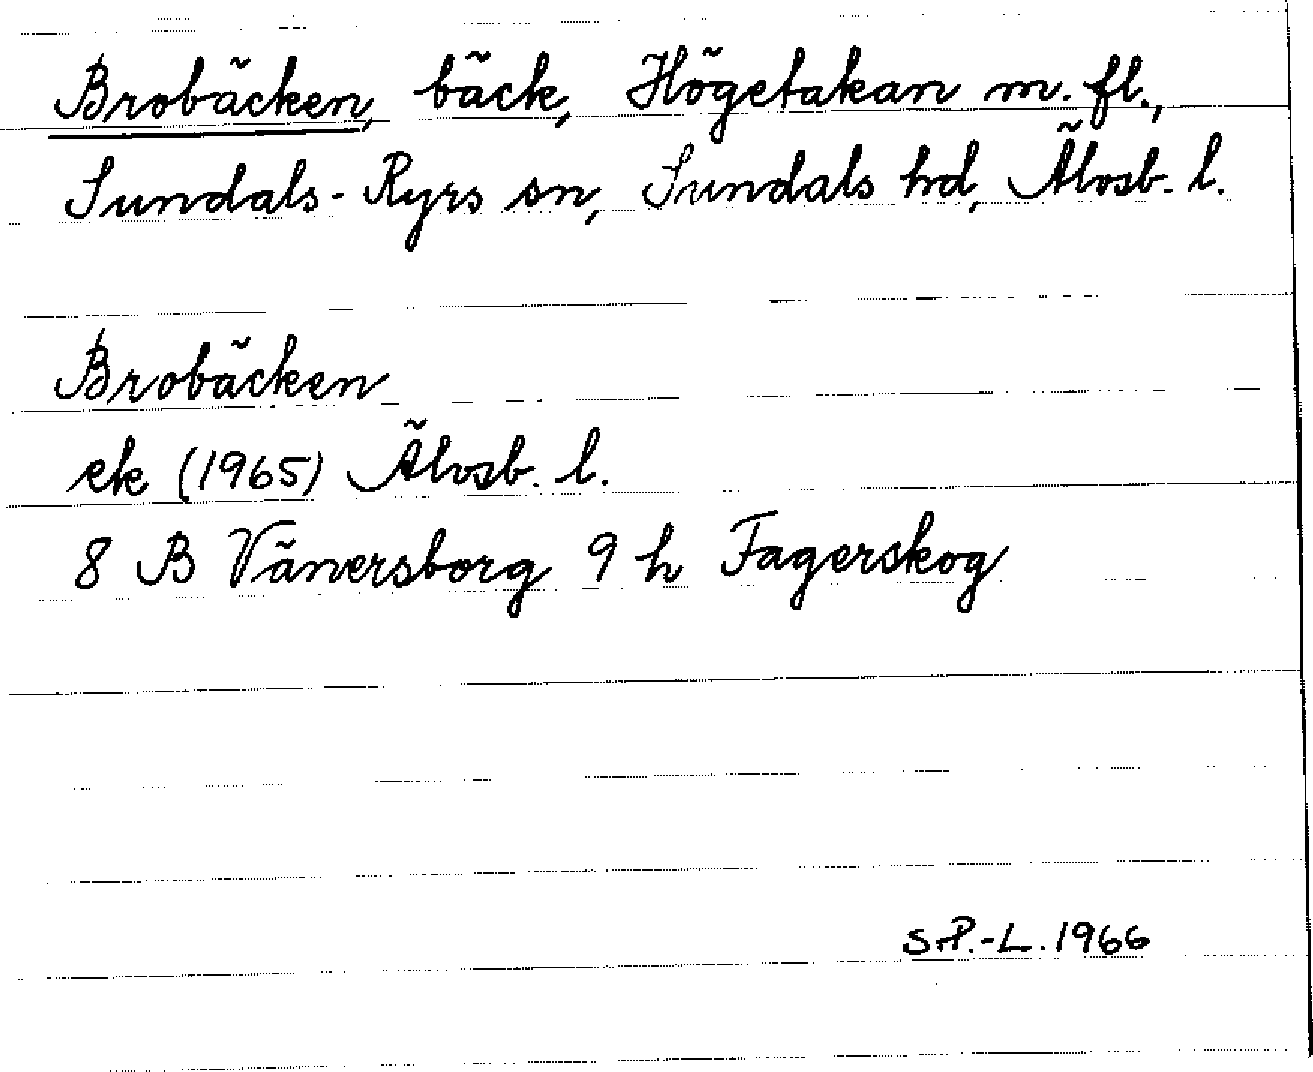 Brobäcken, bäck, Högetakan m. fl.,
Sundals-Ryrs sn, Sundals hd, Älvsb. l.
Brobäcken
ek (1965) Älvsb. l.
8 B Vänersborg 9 h Fagerskog
S.P.-L. 1966